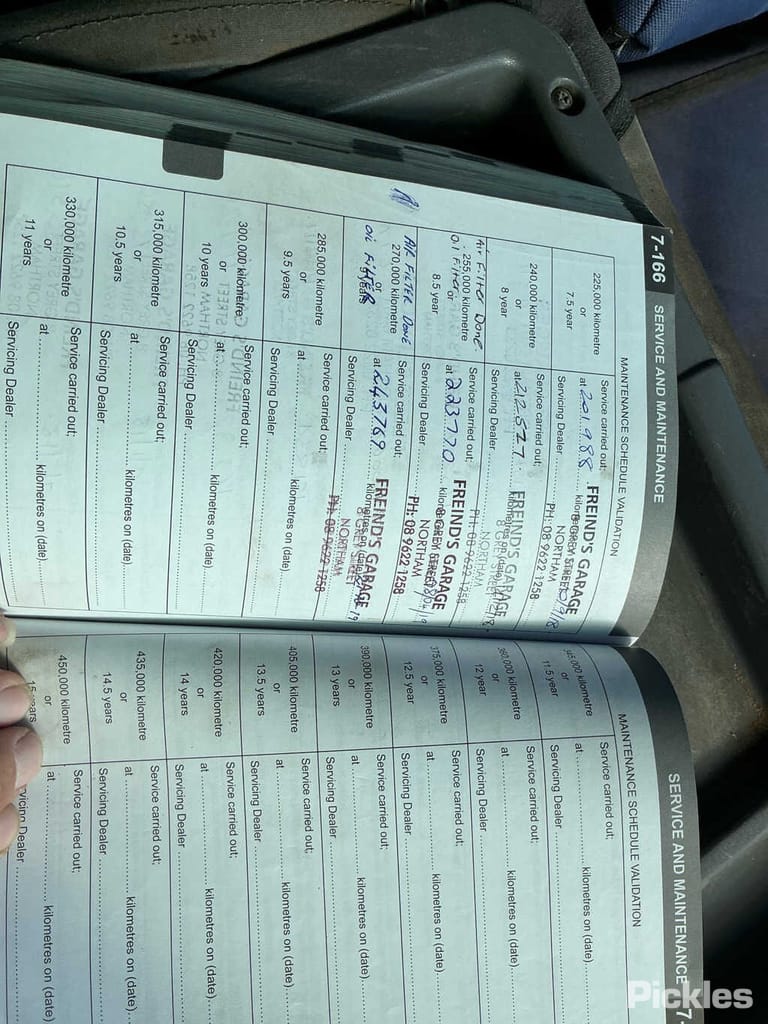 7-166 SERVICE AND MAINTENANCE
MAINTENANCE SCHEDULE VALIDATION
225,000 kilometre
or
7.5 year
Service carried out;
at 201,988 kilom
Servicing Dealer
FREIND'S GARAGE
8 GREY STREET
NORTHAM
PH: 08 9622 1258
240,000 kilometre
or
8 year
Service carried out;
at 212,527 kilometres on (date)
Servicing Dealer
FREIND'S GARAGE
8 GREY STREET
NORTHAM
PH: 08 9622 1258
Air Filter Done.
255,000 kilometre
Oil Filter or
8.5 year
Service carried out;
at 223770 kilom
Servicing Dealer
FREIND'S GARAGE
8 GREY STREET
NORTHAM
PH: 08 9622 1258
AIR FILTER DONE
270,000 kilometre
or
OIL FILTER
9 years
Service carried out;
at 243,769 kilometres on (date)
Servicing Dealer
FREIND'S GARAGE
8 GREY STREET
NORTHAM
PH: 08 9622 1258
285,000 kilometre
or
9.5 years
Service carried out;
at kilometres on (date)
Servicing Dealer
300,000 kilometre
or
10 years
Service carried out;
at kilometres on (date)
Servicing Dealer
315,000 kilometre
or
10.5 years
Service carried out;
at kilometres on (date)
Servicing Dealer
330,000 kilometre
or
11 years
Service carried out;
at kilometres on (date)
Servicing Dealer
SERVICE AND MAINTENANCE 7
MAINTENANCE SCHEDULE VALIDATION
345,000 kilometre
or
11.5 year
Service carried out;
at kilometres on (date)
Servicing Dealer
360,000 kilometre
or
12 year
Service carried out;
at kilometres on (date)
Servicing Dealer
375,000 kilometre
or
12.5 year
Service carried out;
at kilometres on (date)
Servicing Dealer
390,000 kilometre
or
13 years
Service carried out;
at kilometres on (date)
Servicing Dealer
405,000 kilometre
or
13.5 years
Service carried out;
at kilometres on (date)
Servicing Dealer
420,000 kilometre
or
14 years
Service carried out;
at kilometres on (date)
Servicing Dealer
435,000 kilometre
or
14.5 years
Service carried out;
at kilometres on (date)
Servicing Dealer
450,000 kilometre
or
15 years
Service carried out;
at kilometres on (date)
Servicing Dealer
Pickles